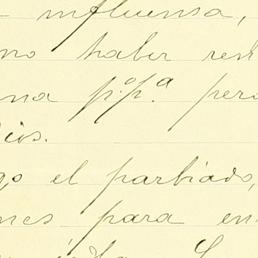 influensa,
no haber res
na p.º p.ª pero
cios.
go el partiado,
nes para en